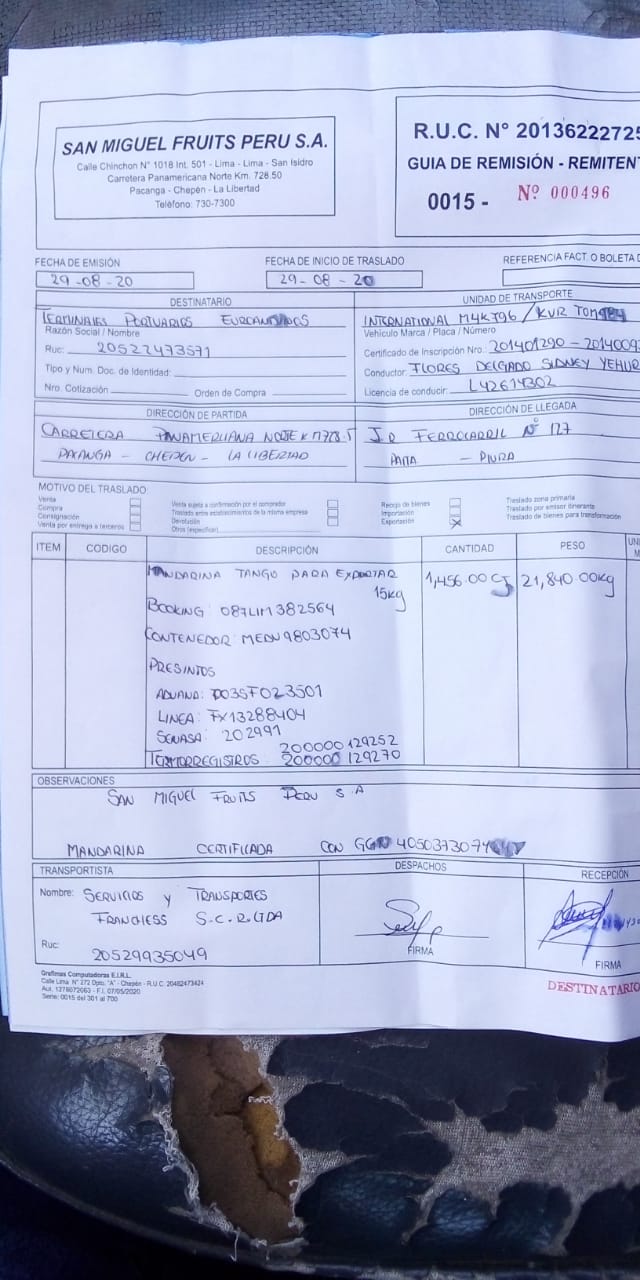 SAN MIGUEL FRUITS PERU S.A.
Calle Chinchon N° 1018 Int. 501 - Lima - Lima - San Isidro
Carretera Panamericana Norte Km. 728.50
Pacanga - Chepén - La Libertad
Teléfono: 730-7300
R.U.C. N° 2013622272
GUIA DE REMISIÓN - REMITEN
0015 - Nº 000496
FECHA DE EMISIÓN
29-08-20
FECHA DE INICIO DE TRASLADO
29-08-20
REFERENCIA FACT. O BOLETA D
DESTINATARIO
TERMINALES PORTUARIOS EUROANDINOS
Razón Social / Nombre
Ruc: 20522473571
Tipo y Num. Doc. de Identidad:
Nro. Cotización: Orden de Compra
UNIDAD DE TRANSPORTE
INTERNATIONAL M4KJ96 / KVR
Vehículo Marca / Placa / Número
Certificado de Inscripción Nro.: 201401290 - 2014009
Conductor: FLORES DELGADO SIDNEY YEHUR
Licencia de conducir: L42614302
DIRECCIÓN DE PARTIDA
CARRETERA PANAMERICANA NORTE KM 728.5
PACANGA - CHEPEN - LA LIBERTAD
DIRECCIÓN DE LLEGADA
JR FERROCARRIL Nº 127
PAITA - PIURA
MOTIVO DEL TRASLADO:
Venta
Compra
Consignación
Venta por entrega a terceros
Venta sujeta a confirmación por el comprador
Traslado entre establecimientos de la misma empresa
Devolución
Otros (especificar)
Recojo de bienes
Importación
Exportación X
Traslado zona primaria
Traslado por emisor itinerante
Traslado de bienes para transformación
ITEM CODIGO DESCRIPCIÓN CANTIDAD PESO UNI
M
MANDARINA TANGO PARA EXPORTAR 1,456.00 CJ 21,840.00kg
15kg
BOOKING: 087LIM382564
CONTENEDOR: MEDU9803074
PRESINTOS
ADUANA: D03SF023501
LINEA: FX13288404
SENASA: 202991
200000129252
TERMORREGISTROS: 200000129270
OBSERVACIONES
SAN MIGUEL FRUITS PERU S.A
MANDARINA CERTIFICADA CON GGN
TRANSPORTISTA
Nombre: SERVICIOS Y TRANSPORTES
FRANCHESS S.C.R.LTDA
Ruc: 20529935049
DESPACHOS
FIRMA
RECEPCIÓN
FIRMA
Grafimas Computadoras E.I.R.L.
Calle Lima N° 272 Dpto. "A" - Chepén - R.U.C. 20482473424
Aut. 1278672063 - F.I. 07/05/2020
Serie: 0015 del 301 al 700
DESTINATARIO